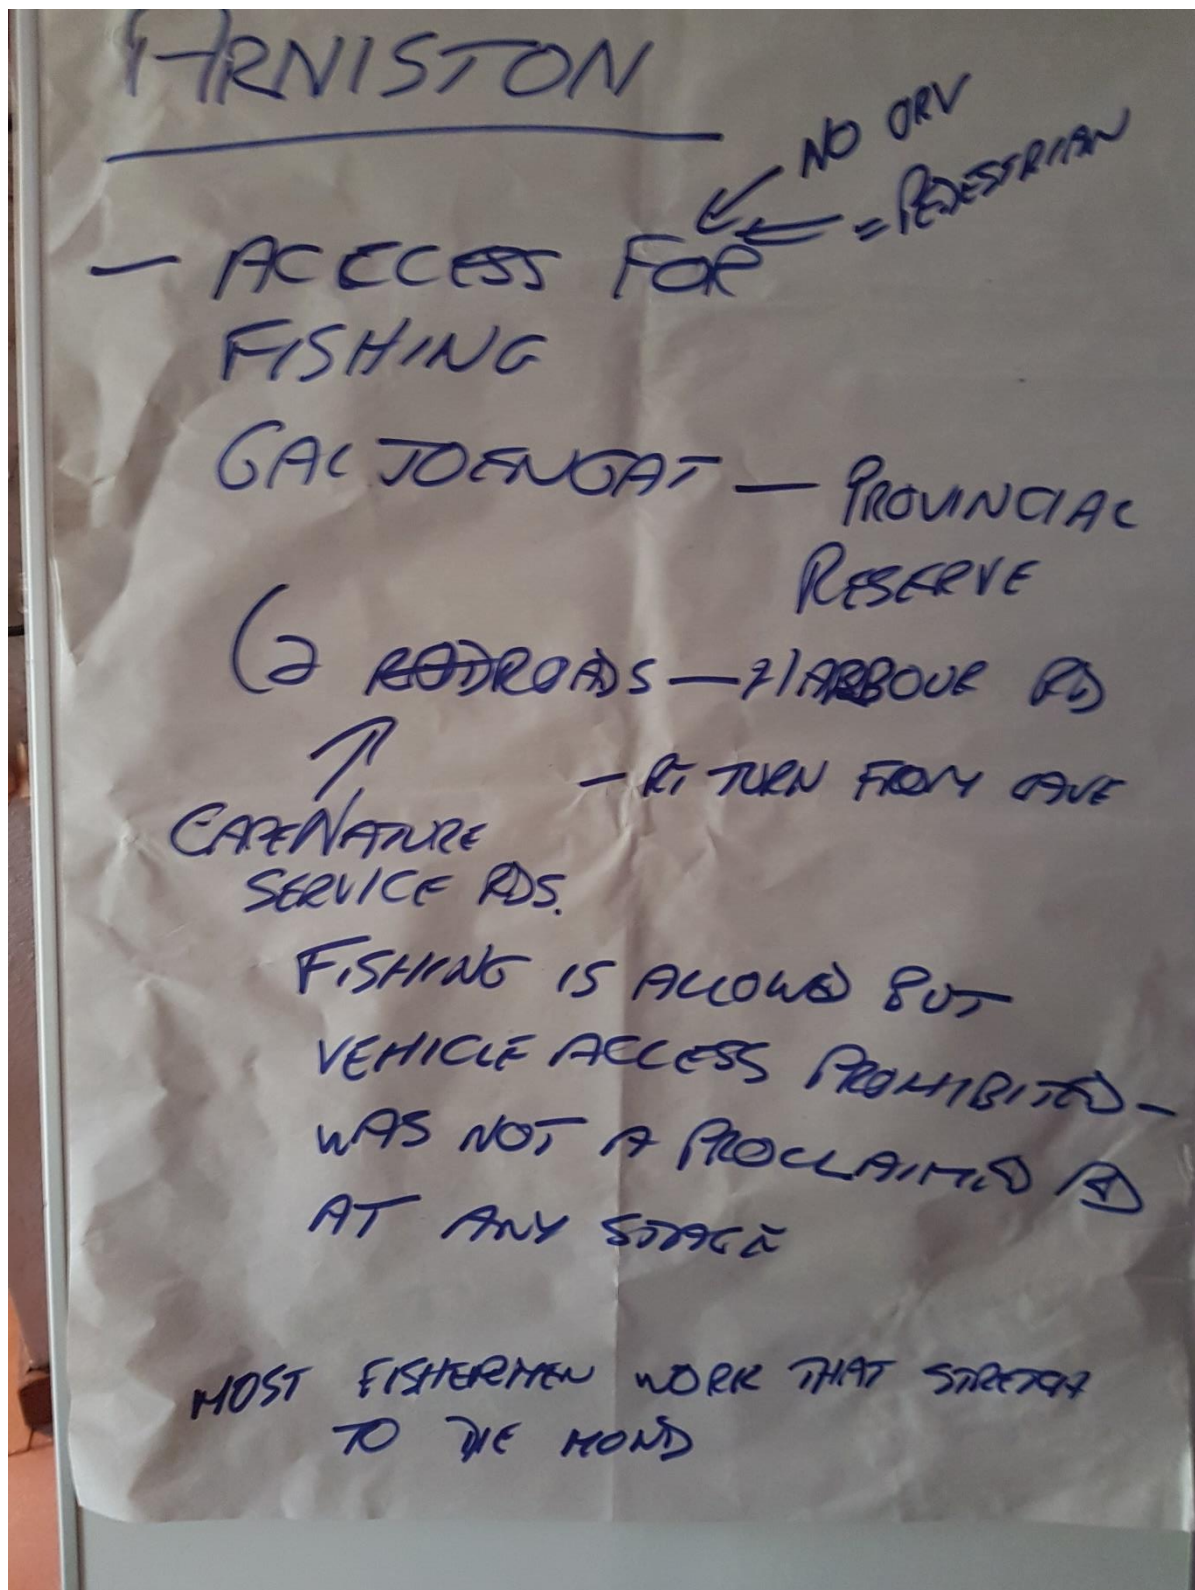 ARNISTON
NO ORV
= PEDESTRIAN
— ACCESS FOR
FISHING
GALJOENGAT — PROVINCIAL
RESERVE
2 ROADS — HARBOUR RD
— RT TURN FROM CAVE
CAPENATURE
SERVICE RDS.
FISHING IS ALLOWED BUT
VEHICLE ACCESS PROHIBITED —
WAS NOT A PROCLAIMED RD
AT ANY STAGE
MOST FISHERMEN WORK THAT STRETCH
TO DIE MOND